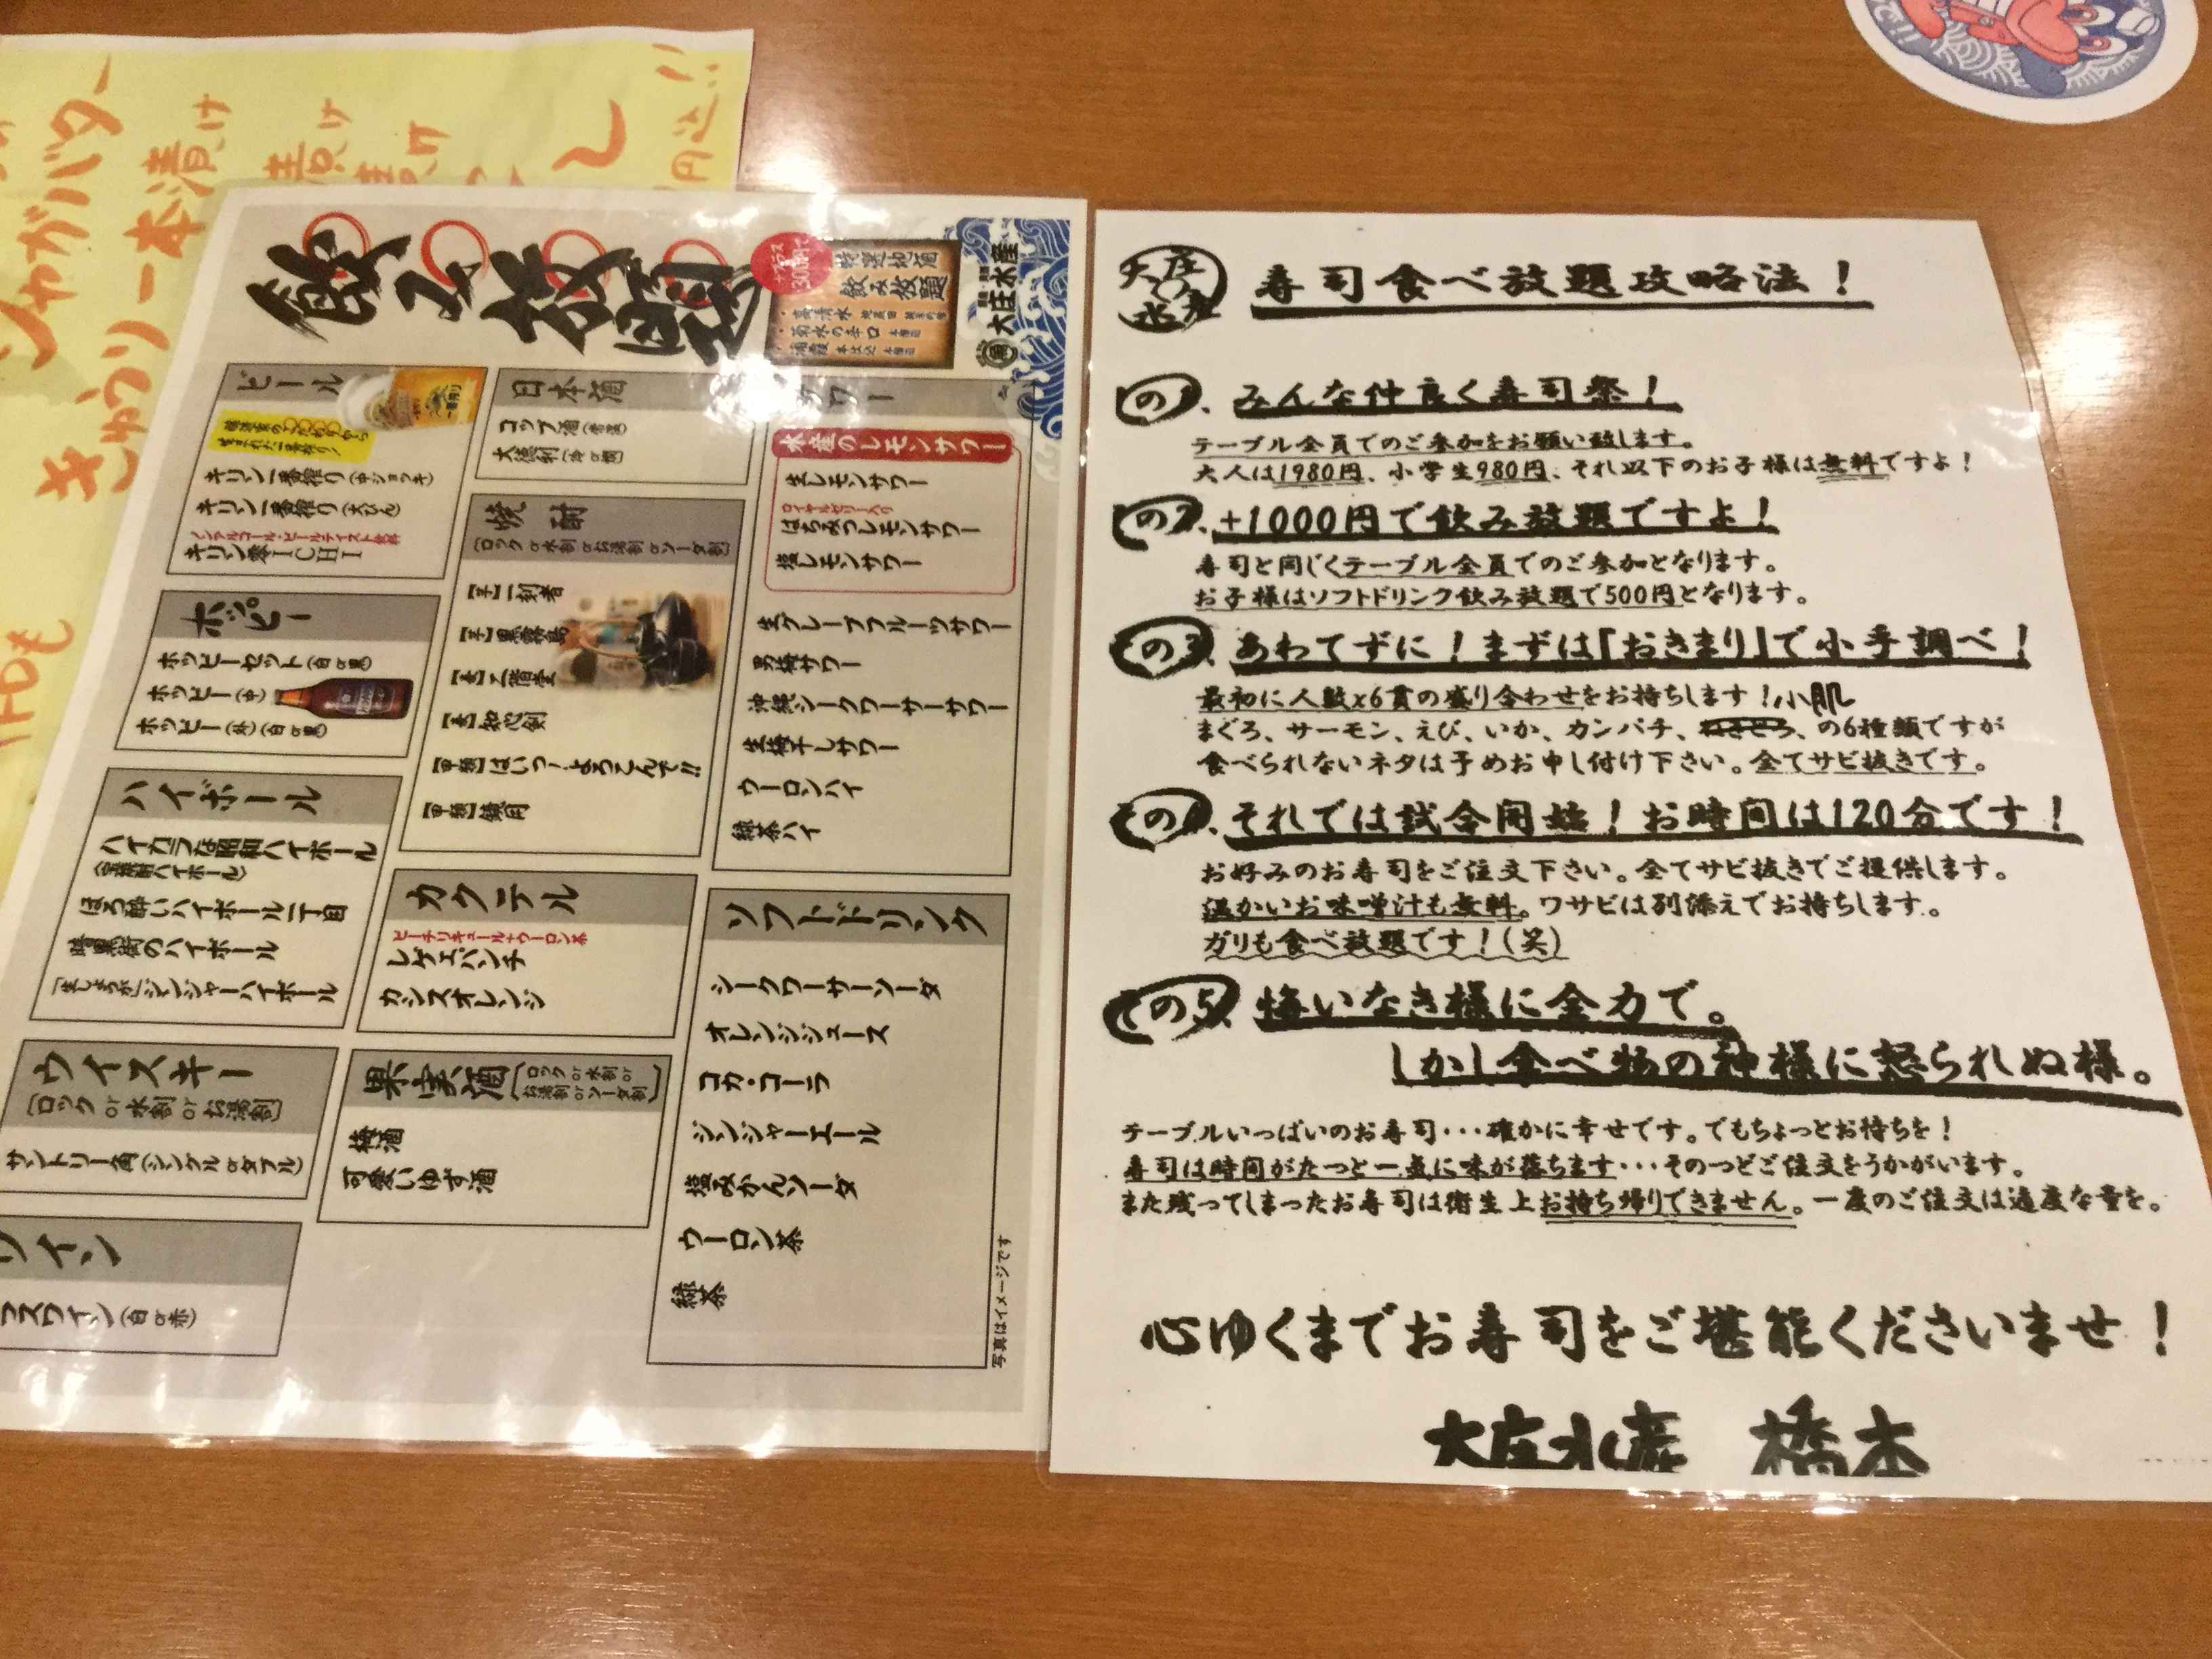 ジャガバター
きゅうり一本漬け
飲み放題
プラス
300円で
特選地酒
飲み放題
・高清水
・菊水の辛口
・浦霞
大庄水産
ビール
キリン一番搾り(中ジョッキ)
キリン一番搾り(大びん)
ノンアルコール・ビールテイスト飲料
キリン零ICHI
ホッピー
ホッピーセット(白or黒)
ホッピー(中)
ホッピー(外)(白or黒)
ハイボール
ハイカラな昭和ハイボール
ほろ酔いハイボール一丁目
暗黒街のハイボール
ジンジャーハイボール
ウイスキー
[ロック or 水割 or お湯割]
サントリー角(シングルorダブル)
ワイン
グラスワイン(白or赤)
日本酒
コップ酒
大徳利
焼酎
[ロックor水割orお湯割orソーダ割]
【芋】一刻者
【芋】黒霧島
【麦】二階堂
【麦】知心剣
【甲類】はいつーよろこんで!!
【甲類】鏡月
カクテル
ピーチリキュール+ウーロン茶
レゲエパンチ
カシスオレンジ
果実酒
[ロックor水割orお湯割orソーダ割]
梅酒
可愛いゆず酒
サワー
水産のレモンサワー
生レモンサワー
ロイヤルゼリー入り
はちみつレモンサワー
塩レモンサワー
生グレープフルーツサワー
男梅サワー
沖縄シークワーサーサワー
生梅干しサワー
ウーロンハイ
緑茶ハイ
ソフトドリンク
シークワーサーソーダ
オレンジジュース
コカ・コーラ
ジンジャーエール
塩みかんソーダ
ウーロン茶
緑茶
写真はイメージです
大庄水産
寿司食べ放題攻略法!
その1、みんな仲良く寿司祭!
テーブル全員でのご参加をお願い致します。
大人は1980円、小学生980円、それ以下のお子様は無料ですよ!
その2、+1000円で飲み放題ですよ!
寿司と同じくテーブル全員でのご参加となります。
お子様はソフトドリンク飲み放題で500円となります。
その3、あわてずに!まずは「おきまり」で小手調べ!
最初に人数x6貫の盛り合わせをお持ちします!小肌
まぐろ、サーモン、えび、いか、カンパチ、ねぎとろ、の6種類ですが
食べられないネタは予めお申し付け下さい。全てサビ抜きです。
その4、それでは試合開始!お時間は120分です!
お好みのお寿司をご注文下さい。全てサビ抜きでご提供します。
温かいお味噌汁も無料。ワサビは別添えでお持ちします。
ガリも食べ放題です!(笑)
その5、悔いなき様に全力で。
しかし食べ物の神様に怒られぬ様。
テーブルいっぱいのお寿司・・・確かに幸せです。でもちょっとお待ちを!
寿司は時間がたつと一気に味が落ちます・・・そのつどご注文をうかがいます。
また残ってしまったお寿司は衛生上お持ち帰りできません。一度のご注文は適度な量を。
心ゆくまでお寿司をご堪能くださいませ!
大庄水産 橋本